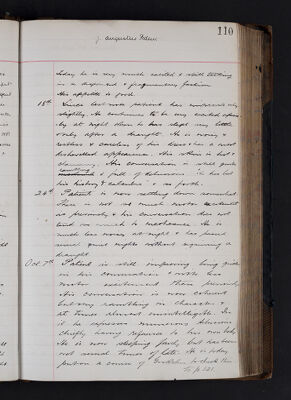 110
J. Augustus
Today he is very much excited & still talking
in a & fragmentary fashion
His appetite is good.
18th Since last note patient has improved very
slightly. He continues to be very excited
by at night & sleeps very little
only after a draught. He is noisy &
restless & careless of his dress & has a most
dishevelled appearance. His skin is hot &
clammy. His conversation is still quite
rambling & full of delusions
his history & & so forth.
24th Patient is now settling down somewhat
There is not so much motor excitement
as previously & his conversation does not
tend so much to He is
much less noisy at night & has passed
some quiet nights without requiring a
draught.
Oct. 7th Patient is still improving being quieter
in his conversation & with less
motor excitement than previously
His conversation is now coherent
but very rambling in character &
at times almost unintelligible. In
it he expresses numerous delusions
chiefly having reference to his own body
He is now sleeping fairly but has been
noisy several times of late. He is today
put on a course of to check this
To p. 121.